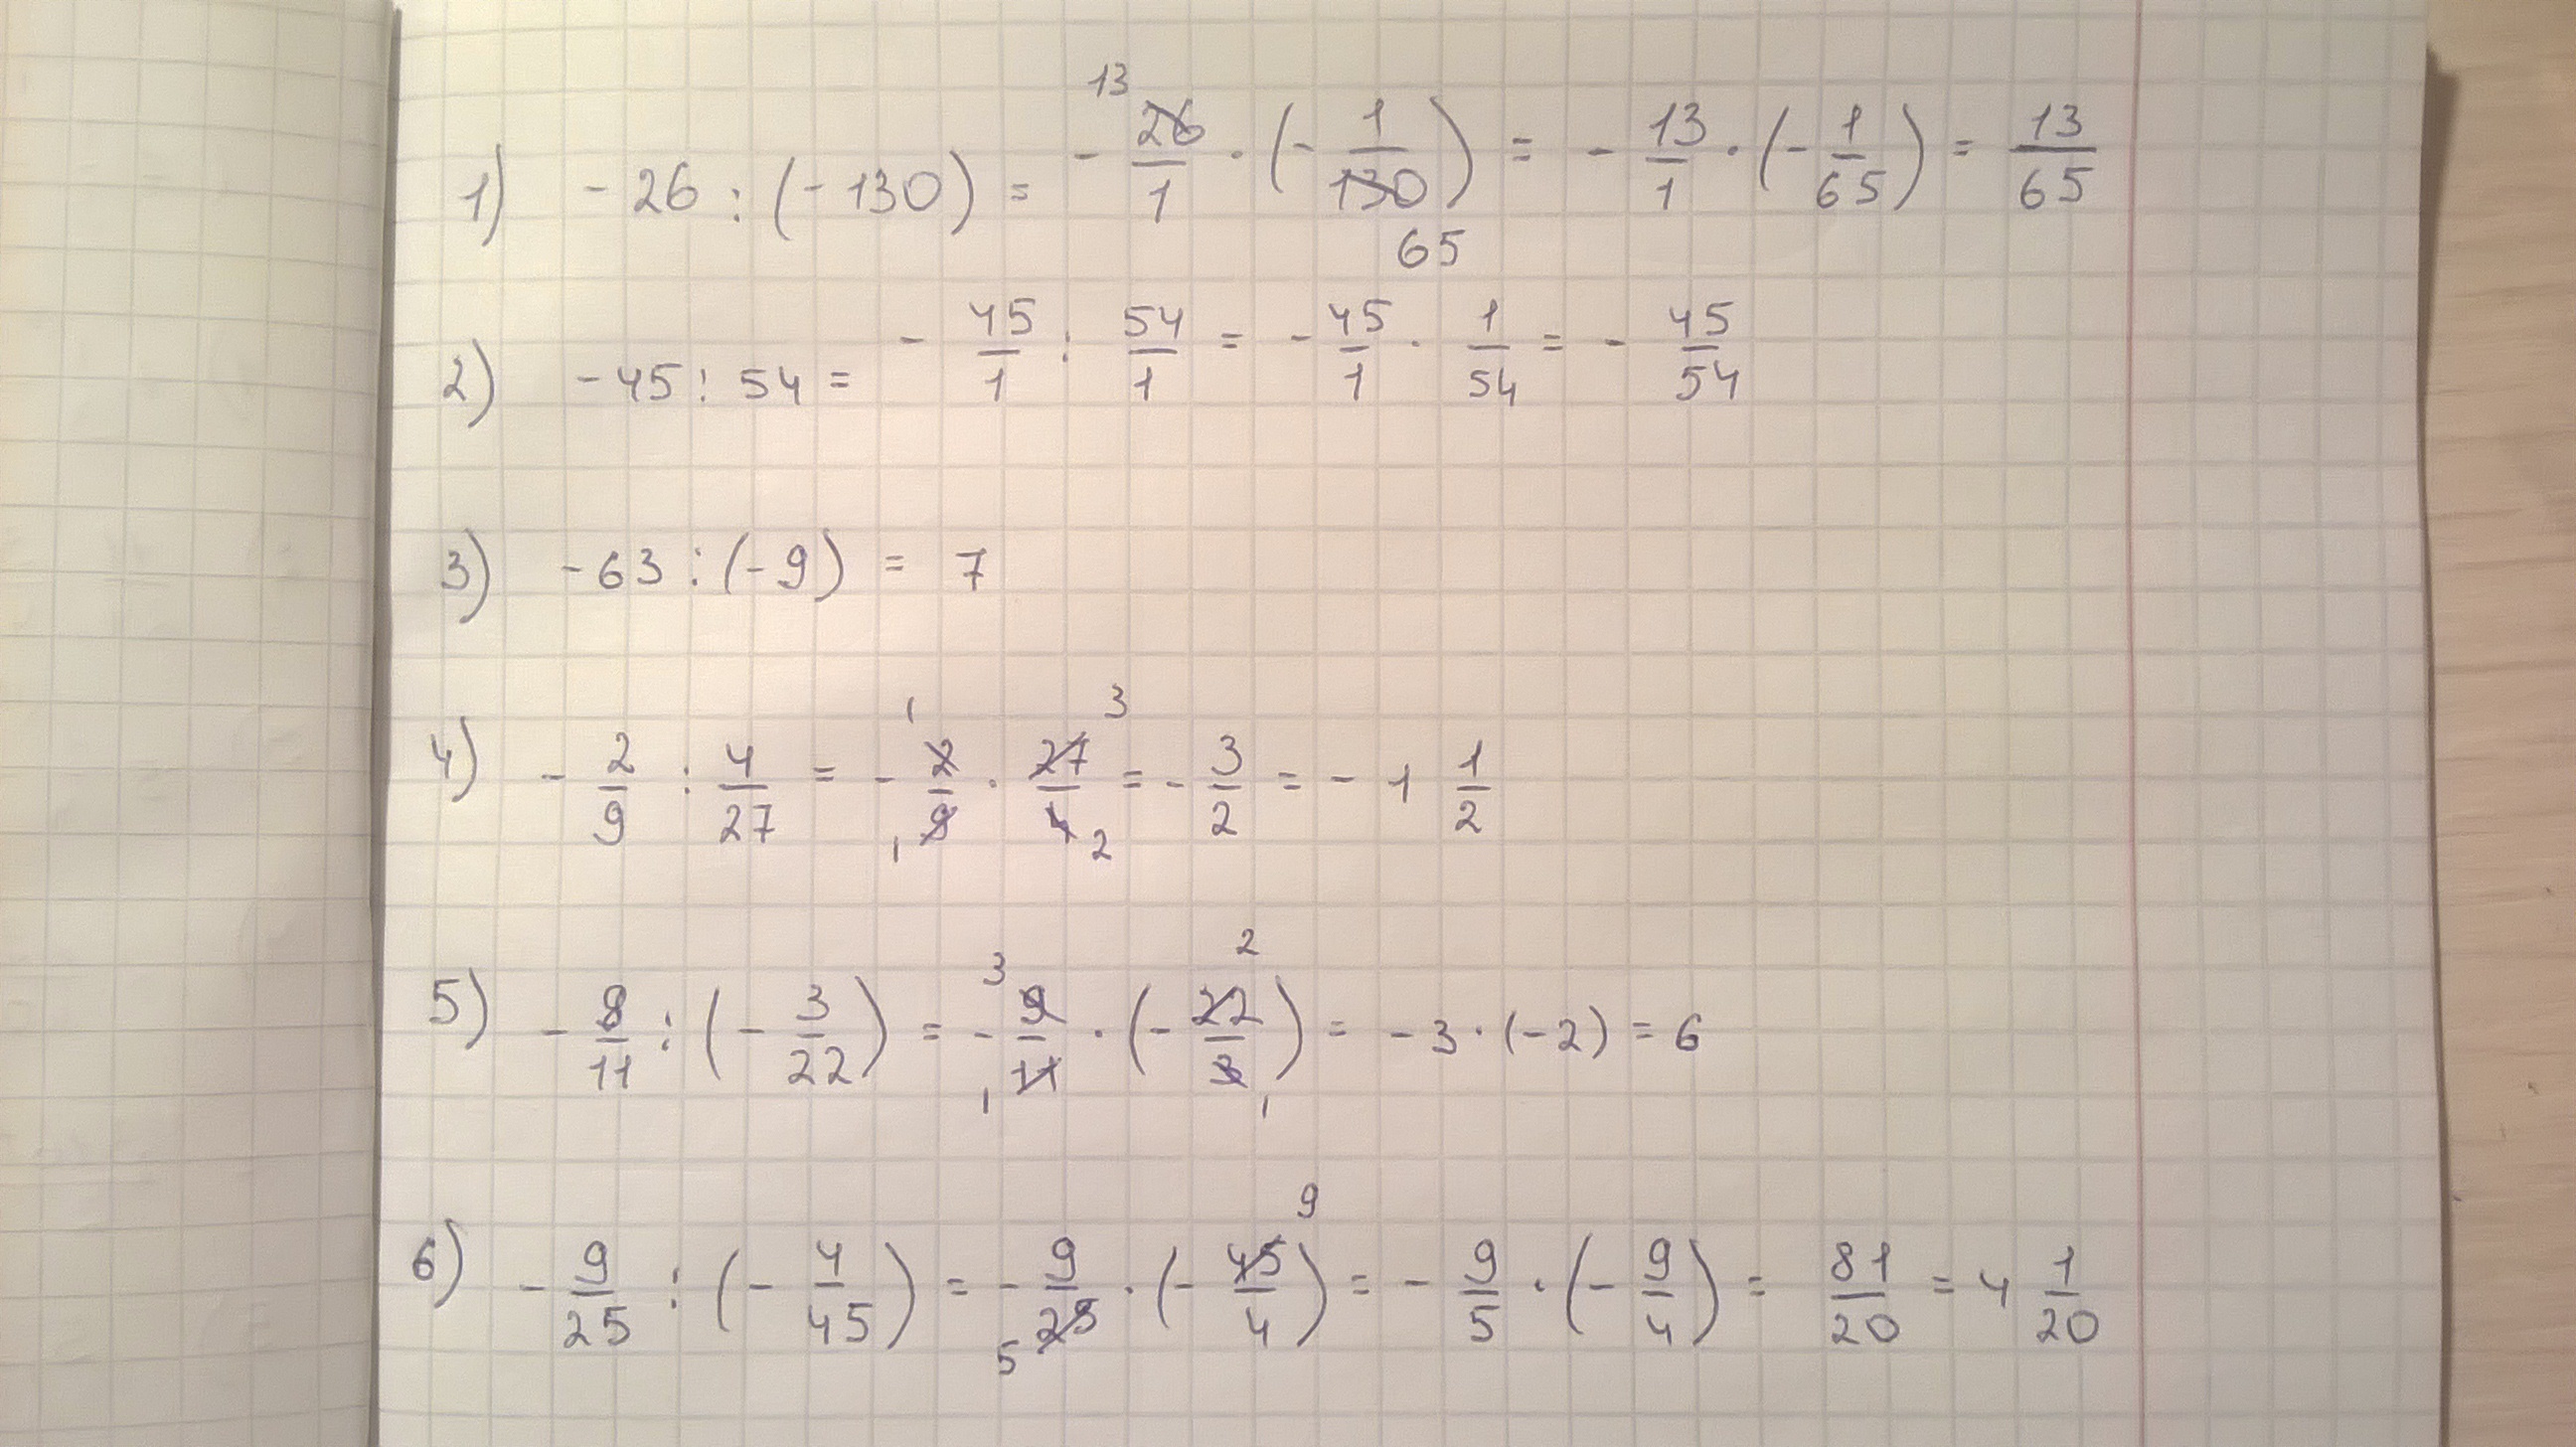 1) -26 : (-130) = - 26/1 · (- 1/130) = - 13/1 · (- 1/65) = 13/65
2) -45 : 54 = - 45/1 : 54/1 = - 45/1 · 1/54 = - 45/54
3) -63 : (-9) = 7
4) - 2/9 : 4/27 = - 2/9 · 27/4 = - 3/2 = - 1 1/2
5) - 9/11 : (- 3/22) = - 9/11 · (- 22/3) = -3 · (-2) = 6
6) - 9/25 : (- 4/45) = - 9/25 · (- 45/4) = - 9/5 · (- 9/4) = 81/20 = 4 1/20